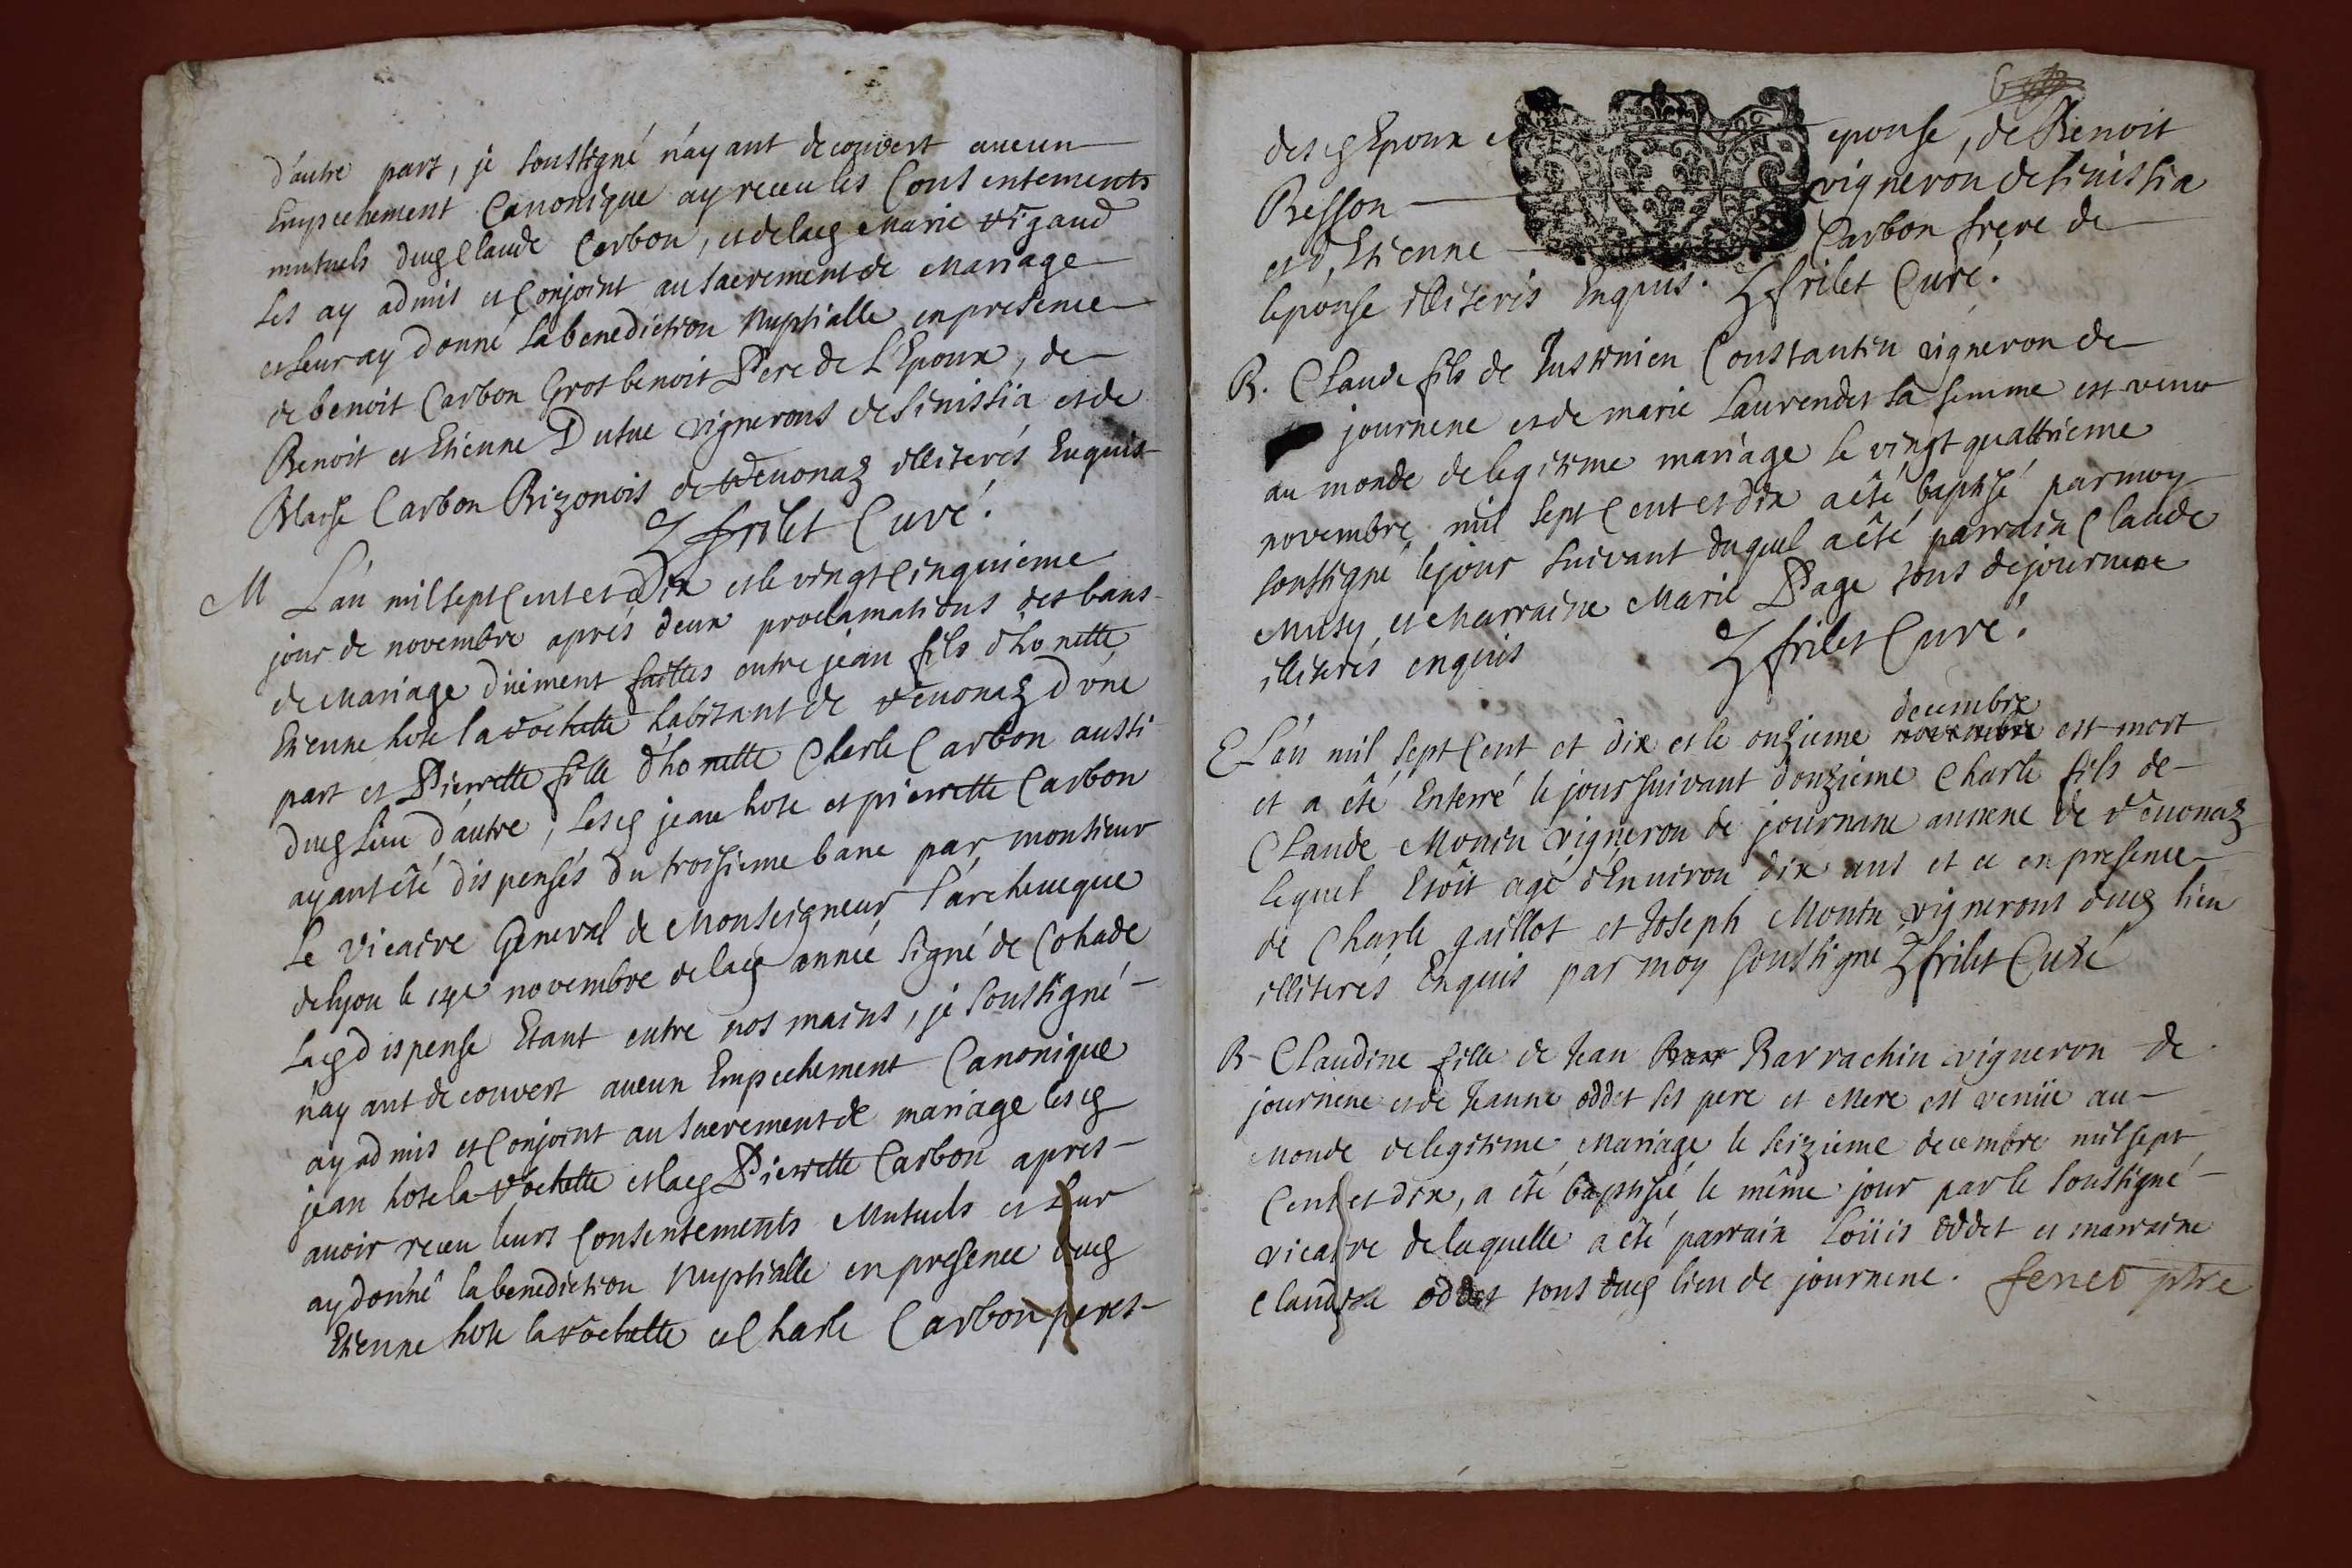 d'autre part, je soussigné n'ayant decouvert aucun
Empechement Canonique ay receu les Consentements
mutuels dud Claude Carbon, et de lad Marie vigaud
Les ay admis et Conjoint au Sacrement de Mariage
et leur ay donné la benediction Nuptialle en presence
de benoit Carbon Gros benoit Pere de L'Epoux, de
Benoit et Etienne Dutue vignerons de Sinissia et de
Blaise Carbon Bizonois de vêuonaz illiterés Enquis
frilet Curé.
M L'an mil sept Cent et dix et le vingt Cinquieme
jour de novembre aprés deux proclamations des bans
de Mariage düement faittes entre jean fils d'honette
Etienne hote la rochette habitant de vêuonaz d'une
part et Pierrette fille d'honette Charle Carbon aussi
dud lieu d'autre, Lesd jean hote et pierrette Carbon
ayant été dispensés du troisieme banc par monsieur
Le Vicaire General de Monseigneur l'archeueque
de lyon le novembre de lad année signé de Cohade
Lad dispense Etant entre nos mains, je soussigné
n'ayant decouvert aucun Empechement Canonique
ay admis et Conjoint au Sacrement de mariage lesd
jean hote la rochette et lad Pierrette Carbon apres
auoir receu leurs Consentements Mutuels et Leur
ay donné la benediction Nuptialle en presence dud
Etienne hote la rochette et Charle Carbon peres
desd Epoux et epouse, de Benoit
Besson vigneron de Sinissia
et d'Etienne Carbon frere de
l'epouse illiterés Enquis. frilet Curé.
B. Claude fils de Justinien Constantin vigneron de
journene et de marie Laurendet sa femme est venu
au monde de legitime mariage le vingt quattrieme
novembre mil sept Cent et dix a été baptisé par moy
soussigné le jour suivant duquel a été parrain Claude
Musy et Marraine Marie Page tous de journene
illiterés enquis frilet Curé.
decembre
E L'an mil sept Cent et dix et le onzieme novembre est mort
et a été Enterré le jour suivant douzieme Charle fils de
Claude Monin vigneron de journane annexe de vêuonaz
Lequel Etoit agé d'Enuiron dix ans et ce en presence
de Charle gaillot et Joseph Monin vignerons dud lieu
illiterés Enquis par moy soussigné frilet Curé
B Claudine fille de Jean Barrachin vigneron de
journene et de Jeanne oddet ses pere et Mere est venüe au
Monde de legitime Mariage le seizieme decembre mil sept
Cent et dix, a été baptisée le même jour par le soussigné
vicaire de laquelle a été parrain Loüis oddet et marraine
Claudine oddet tous dud lieu de journene. fenet ptre